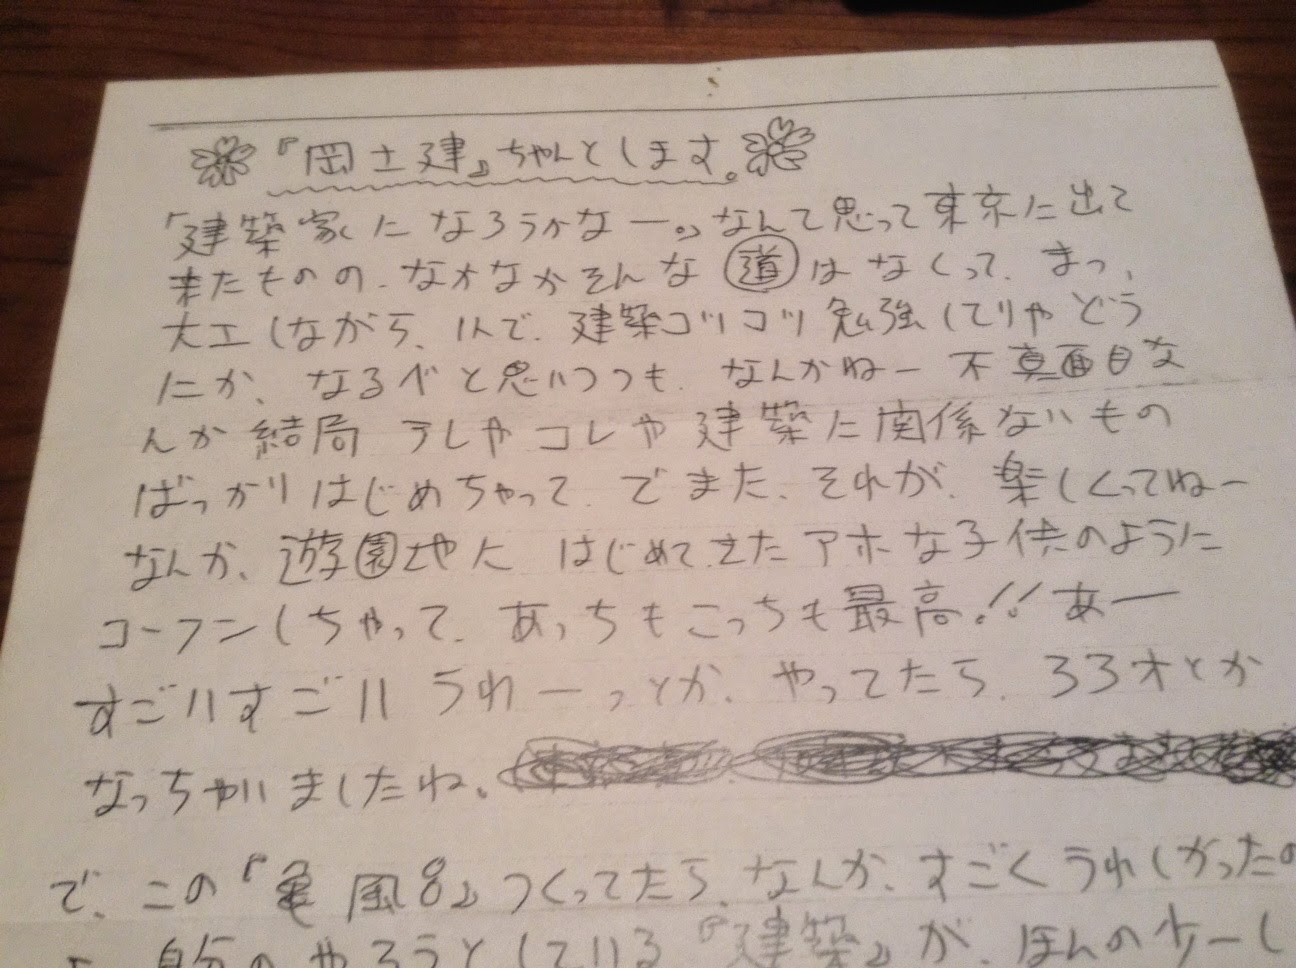 『岡土建』ちゃんとします。
「建築家になろうかなー。」なんて思って東京に出て
来たものの、なかなかそんな道はなくって、まっ、
大工しながら、1人で、建築コツコツ勉強してりゃどう
にか、なるべと思いつつも、なんかね一不真面目な
んか結局 アレやコレや建築に関係ないもの
ばっかりはじめちゃって、でまた、それが、楽しくってねー
なんか、遊園地に はじめてきたアホな子供のように
コーフンしちゃって、あっちもこっちも最高!!あー
すごいすごい うれーっとか、やってたら、33才とか
なっちゃいましたね。
で、この『亀風8』つくってたら、なんか、すごくうれしかったの
自分のやろうとしている『建築』が、ほんの少ーし